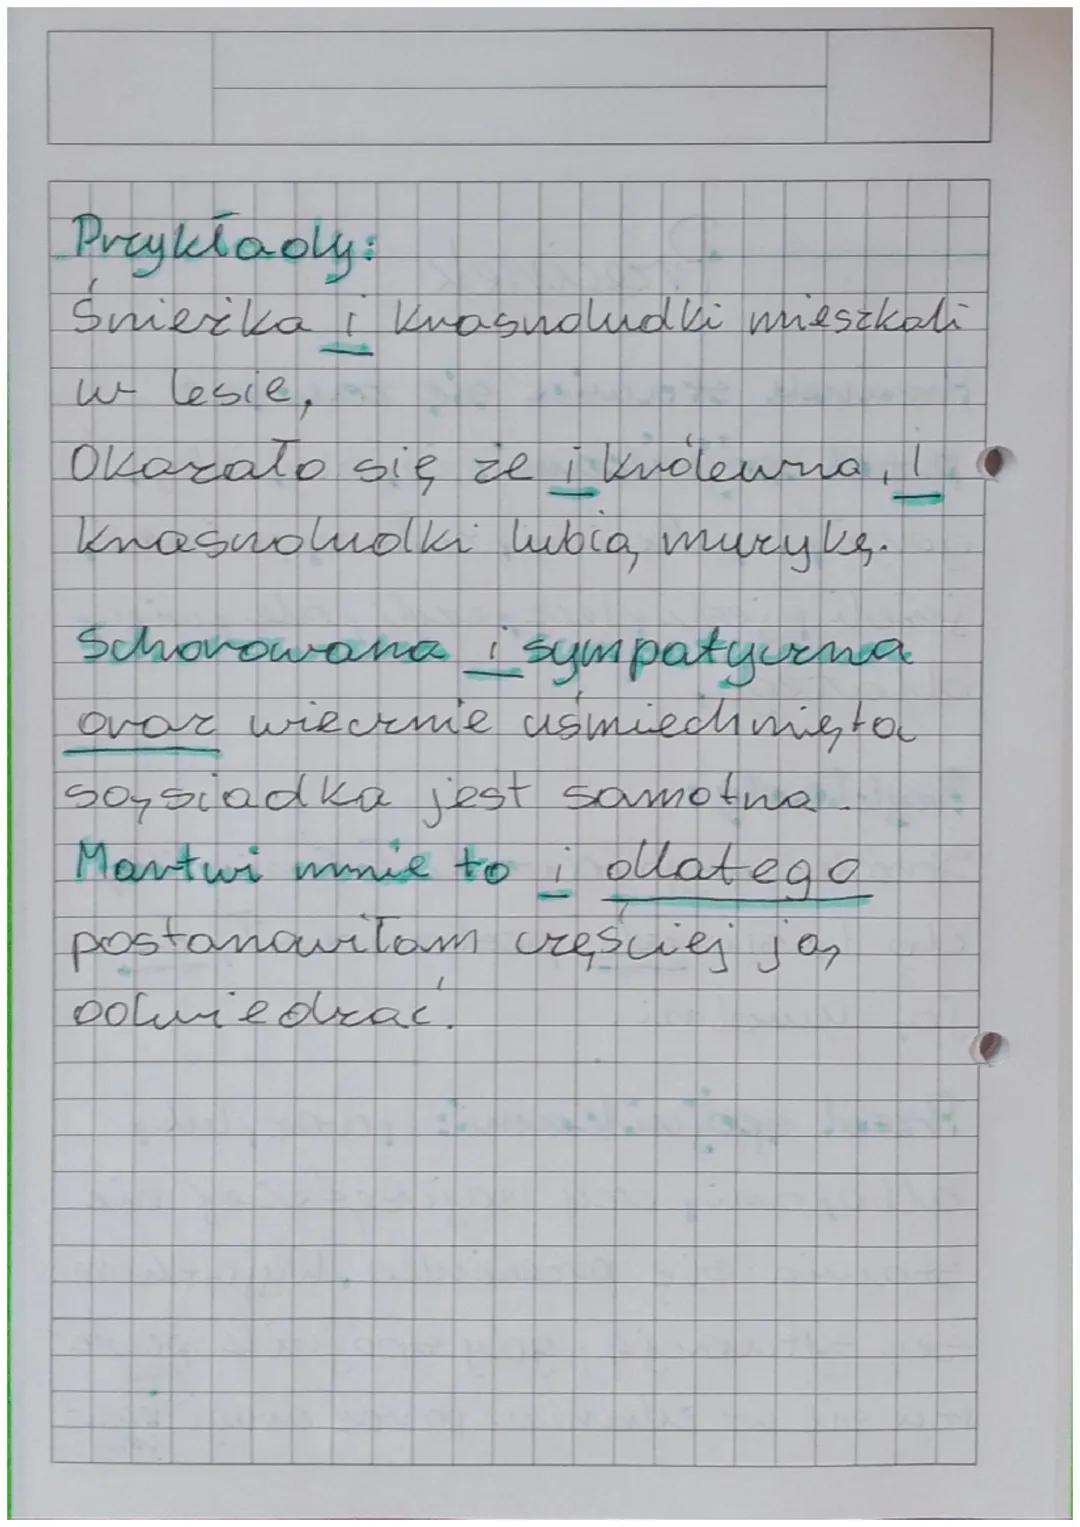 Przykłady:
Śnieżka i krasnoludki mieszkali
w lesie,
Okazało się że i królewna, i
krasnoludki lubią muzykę.
Schorowana i sympatyczna
oraz wiecznie uśmiechnięta
sąsiadka jest samotna.
Martwi mnie to i dlatego
postanowiłam częściej ją
odwiedzać.